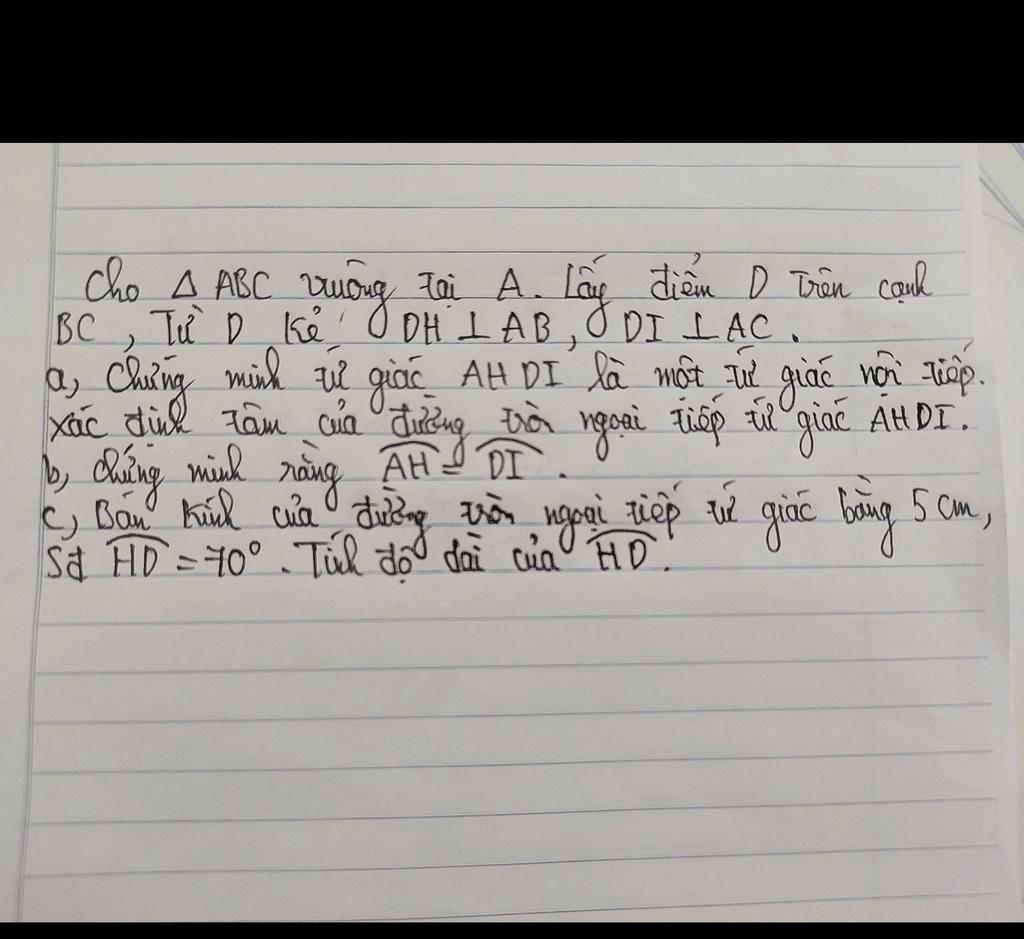 Cho Δ ABC vuông tại A. Lấy điểm D trên cạnh
BC, Từ D kẻ DH ⊥ AB, DI ⊥ AC.
a, Chứng minh tứ giác AHDI là một tứ giác nội tiếp.
xác định tâm của đường tròn ngoại tiếp tứ giác AHDI.
b, Chứng minh rằng \overset{\frown}{AH} = \overset{\frown}{DI}.
c, Bán kính của đường tròn ngoại tiếp tứ giác bằng 5 cm,
Sđ \overset{\frown}{HD} = 70°. Tính độ dài của \overset{\frown}{HD}.